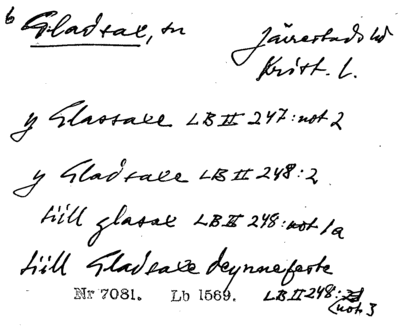 b Gladsax, sn Järrestads hd
Krist. l.
y Glassaxe LB II 247: not 2
y Gladsaxe LB II 248: 2
till glasax LB II 248: not 1a
till Gladsaxe deynnefeste
Nr 7081. Lb 1569. LB II 248:
not 3